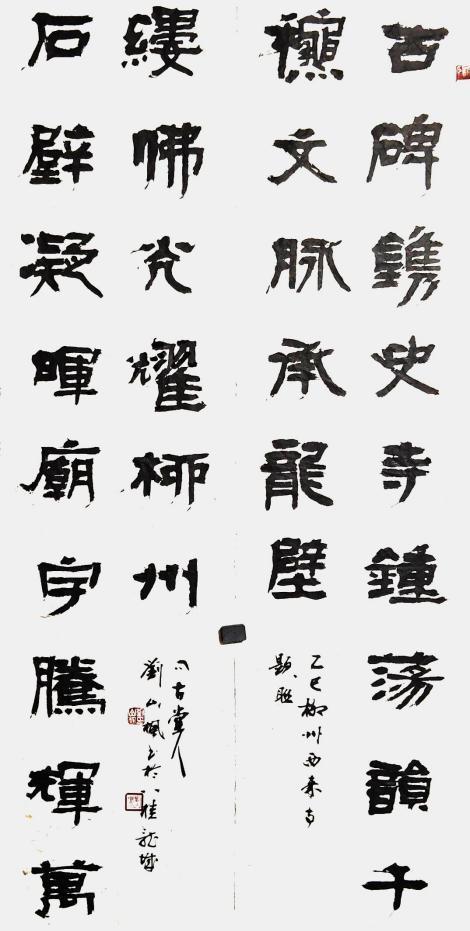 古碑鐫史寺鐘蕩韻千
龝文脉承龍壁
乙巳柳州西来寺
題聯
石壁凝暉廟宇騰輝萬
縷佛光耀柳州
古堂人
劉山楓書於八桂龍城